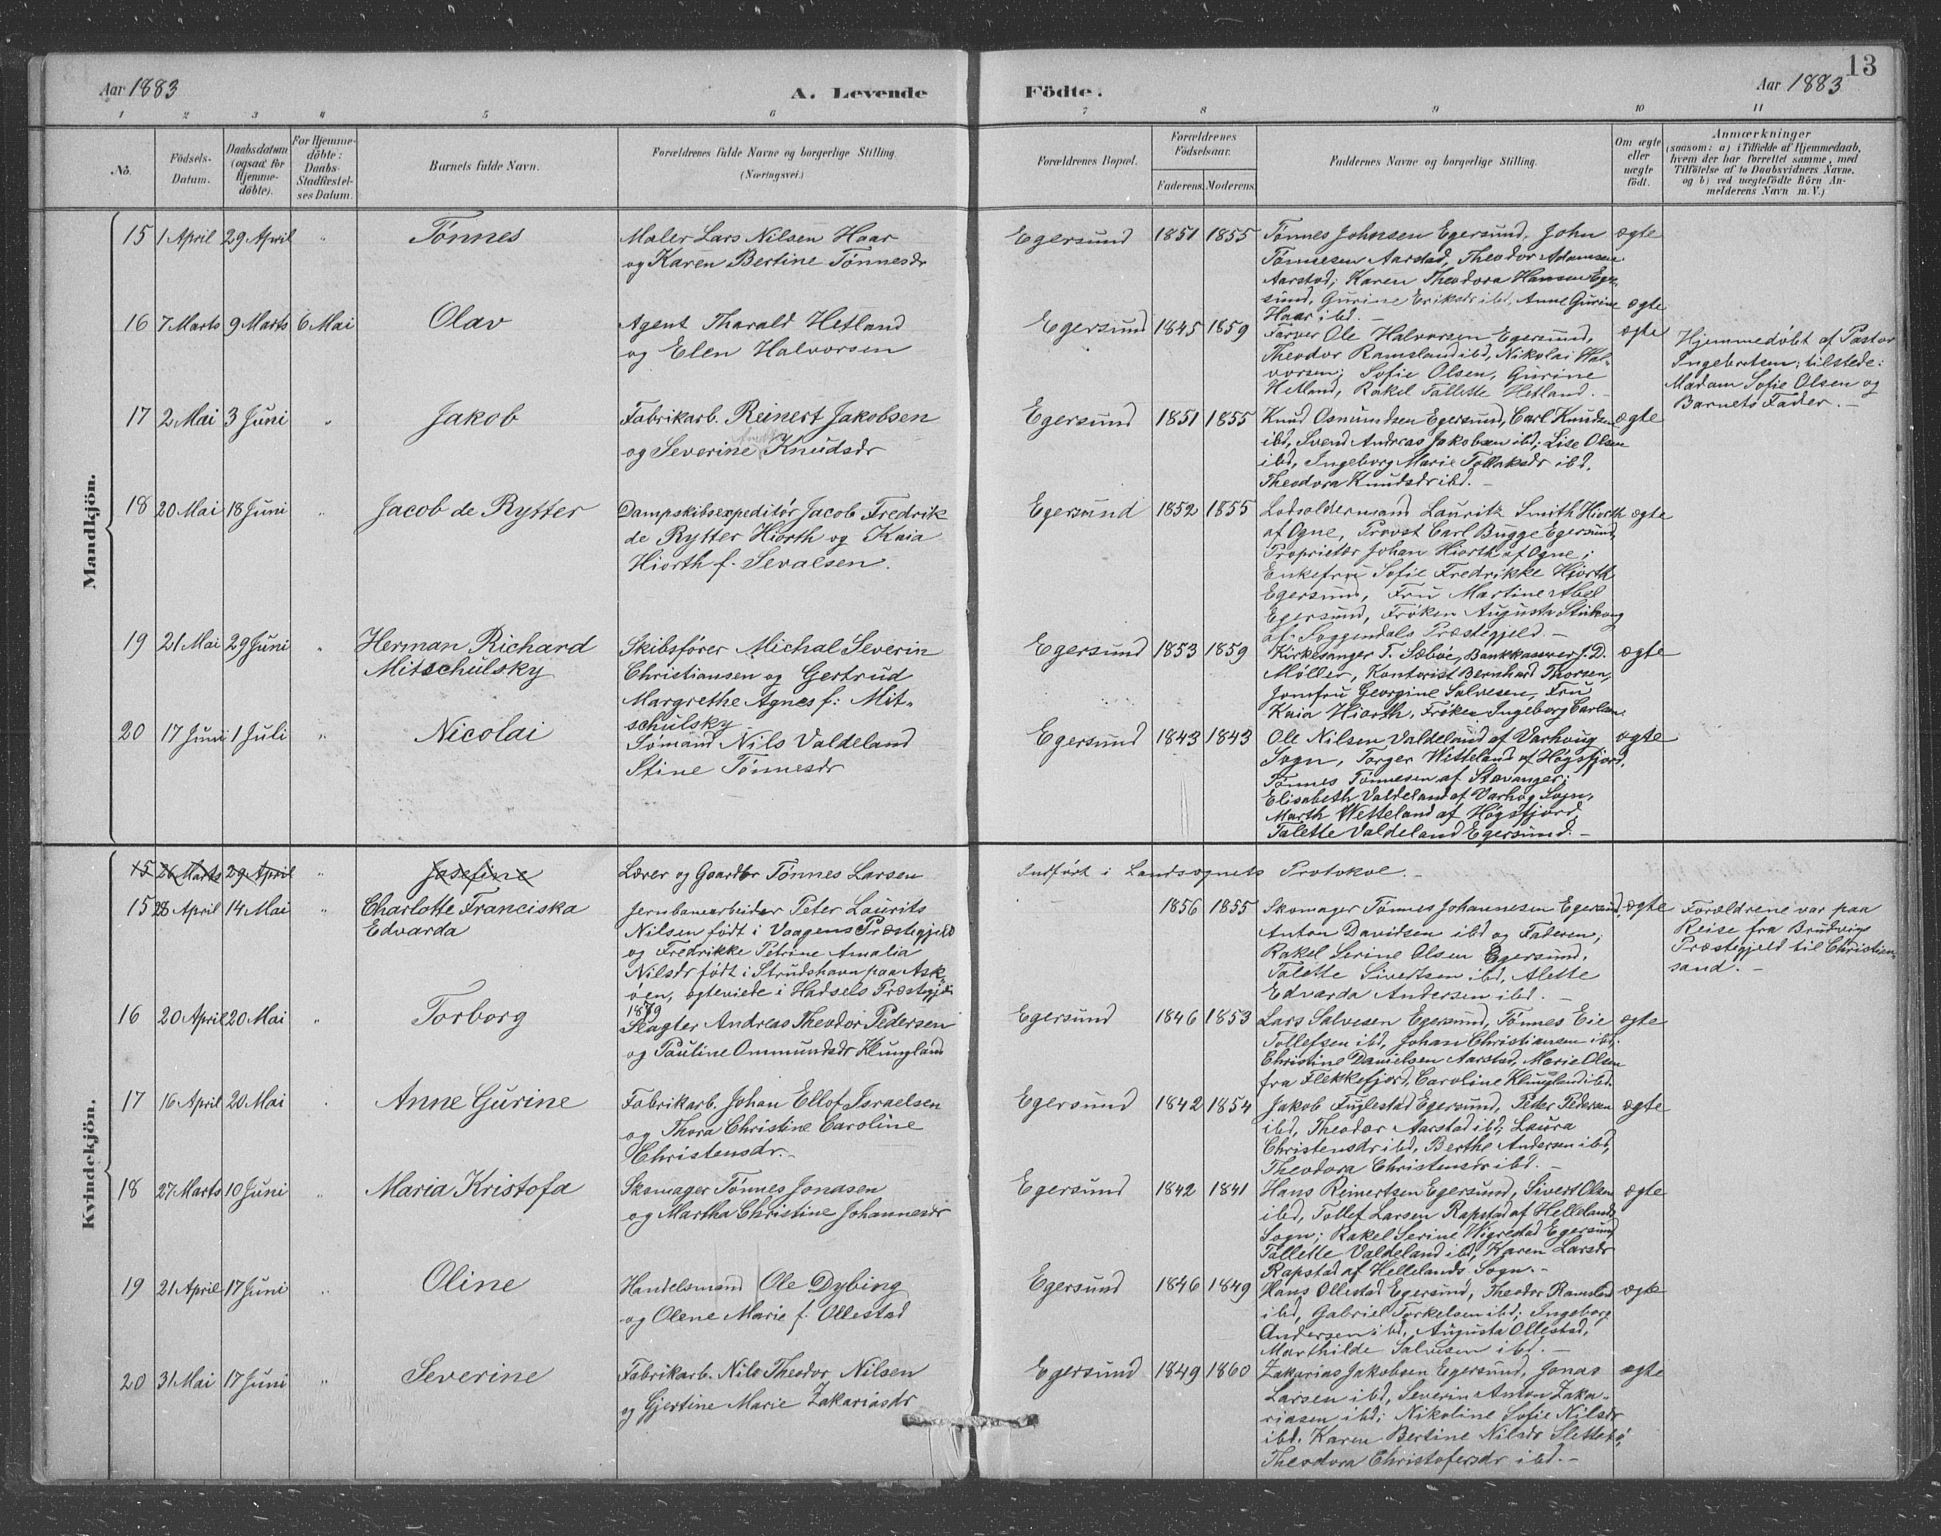 13
Aar 1883
A. Levende Födte.
Aar 1883
1 2 3 4 5 6 7 8 9 10 11
No.
Födsels-
Datum.
Daabsdatum
(ogsaa for
Hjemme-
döbte).
For Hjemme-
döbte:
Daabs-
Stadfæstel-
ses Datum.
Barnets fulde Navn.
Forældrenes fulde Navne og borgerlige Stilling.
(Næringsvei.)
Forældrenes Bopæl.
Forældrenes
Födselsaar.
Faderens. Moderens.
Faddernes Navne og borgerlige Stilling.
Om ægte
eller
uægte
födt.
Anmærkninger
(saasom: a) i Tilfælde af Hjemmedaab,
hvem der har forrettet samme, med
Tilföielse af to Daabsvidners Navne.
og b) ved uægtefödte Börn An-
melderens Navn m. V.)
Mandkjön.
15 1 April 29 April " Tønnes
Maler Lars Nilsen Haar
og Karen Bertine Tønnesdr
Egersund 1851 1855
Tønnes Johnsen Egersund, John
Tønnesen Aarstad, Theodor Adamsen
Aarstad; Karen Theodora Hansen Eger-
sund, Gurine Eriksdr ibd, Anne Gurine
Haar ibd. –
ægte
ægte
16 7 Marts 9 Marts 6 Mai Olav
Agent Tharald Hetland
og Elen Halvorsen
Egersund 1845 1859
Farver Ole Halvorsen Egersund,
Theodor Ramsland ibd, Nikolai Hal-
vorsen; Sofie Olsen, Gurine
Hetland, Rakel Tallette Hetland. –
ægte
Hjemmedøbt af Pastor
Ingebretsen; tilstede:
Madam Sofie Olsen og
Barnets Fader. –
17 2 Mai 3 Juni " Jakob
Fabrikarb. Reinert Jakobsen
og Severine Knudsdr
Egersund 1851 1855
Knud Osmundsen Egersund, Carl Knudsen
ibd, Svend Andreas Jakobsen ibd; Lise Olsen
ibd, Ingeborg Marie Tollaksdr ibd,
Theodora Knudsdr ibd. –
ægte
18 20 Mai 18 Juni " Jacob de Rytter
Dampskibsexpeditør Jacob Fredrik
de Rytter Hiorth og Kaia
Hiorth f. Sevalsen.
Egersund 1852 1855
Lodsoldermand Lauritz Smith Hiorth
af Ogne, Provst Carl Bugge Egersund,
Proprietær Johan Hiorth af Ogne;
Enkefru Sofie Fredrikke Hiorth
Egersund, Fru Martine Abel
Egersund, Frøken Augusta
af Soggendals Præstegjeld. –
ægte
19 21 Mai 29 Juni " Herman Richard
Mitschulsky
Skibsfører Michal Severin
Christiansen og Gertrud
Margrethe Agnes f: Mit-
schulsky
Egersund 1853 1859
Kirkesanger T. Sæbøe, Bankkasserer J. D.
Møller, Kontorist Bernhard Thorsen,
Jomfru Georgine Salvesen, Fru
Kaia Hiorth, Frøken Ingeborg
ægte
20 17 Juni 1 Juli " Nicolai
Sømand Nils Valdeland
Stine Tønnesdr
Egersund 1843 1843
Ole Nilsen Valdeland af Varhoug
Sogn, Torger Wetteland af Høgsfjord,
Tønnes Tønnesen af Stavanger;
Elisabeth Valdeland af Varhog Sogn,
Marth Wetteland af Høgsfjord,
Talette Valdeland Egersund. –
ægte
Kvindekjön.
15 26 Marts 29 April " Josefine
Lærer og Gaardbr Tønnes Larsen
Indført i Landsognets Protokol. –
15 28 April 14 Mai " Charlotte Franciska
Edvarda
Jernbanearbeider Peter Laurits
Nilsen født i Vaagens Præstegjeld
og Fredrikke Petrine Amalia
Nilsdr født i Strudshavn paa Ask-
øen, ægteviede i Hadsels Præstegjeld
1879
1856 1855
Skomager Tønnes Johannesen Egersund,
Anton Davidsen ibd og Faderen;
Rakel Serine Olsen Egersund,
Talette Sivertsen ibd, Alette
Edvarda Andersen ibd. –
ægte
Forældrene var paa
Reise fra Brudvigs
Præstegjeld til Christian-
sand. –
16 20 April 20 Mai " Torborg
Slagter Andreas Theodor Pedersen
og Pauline Ommundsdr Klungland
Egersund 1846 1853
Lars Salvesen Egersund, Tønnes Eie
Tollefsen ibd, Johan Christiansen ibd;
Christine Danielsen Aarstad, Marie Olsen
fra Flekkefjord, Caroline Klungland ibd.
ægte
17 16 April 20 Mai " Anne Gurine
Fabrikarb. Johan Ellof Israelsen
og Thora Christine Caroline
Christensdr. –
Egersund 1842 1854
Jakob Fuglestad Egersund, Peter Pedersen
ibd, Theodor Aarstad ibd; Laura
Christensdr ibd, Berthe Andersen ibd,
Theodora Christensdr ibd. –
ægte
18 27 Marts 10 Juni " Maria Kristofa
Skomager Tønnes Jonasen
og Martha Christine Johannesdr
Egersund 1842 1841
Hans Reinertsen Egersund, Sivert Olsen
ibd, Tollef Larsen Rapstad af Hellelands
Sogn; Rakel Serine Wigrestad Egersund
Tallette Valdeland ibd, Karen Larsdr
Rapstad af Hellelands Sogn. –
ægte
19 21 April 17 Juni " Oline
Handelsmand Ole Dybing
og Olene Marie f. Ollestad
Egersund 1846 1849
Hans Ollestad Egersund, Theodor Ramsland
ibd, Gabriel Torkelsen ibd; Ingeborg
Andersen ibd, Augusta Ollestad,
Marthilde Salvesen ibd. –
ægte
20 31 Mai 17 Juni " Severine
Fabrikarb. Nils Theodor Nilsen
og Gjertine Marie Zakariasdr
Egersund 1849 1860
Zakarias Jakobsen Egersund, Jonas
Larsen ibd, Severin Anton Zaka-
riasen ibd; Nikoline Sofie Nilsdr
ibd. Karen Bertine Nilsdr Slettebø,
Theodora Christofersdr ibd. –
ægte